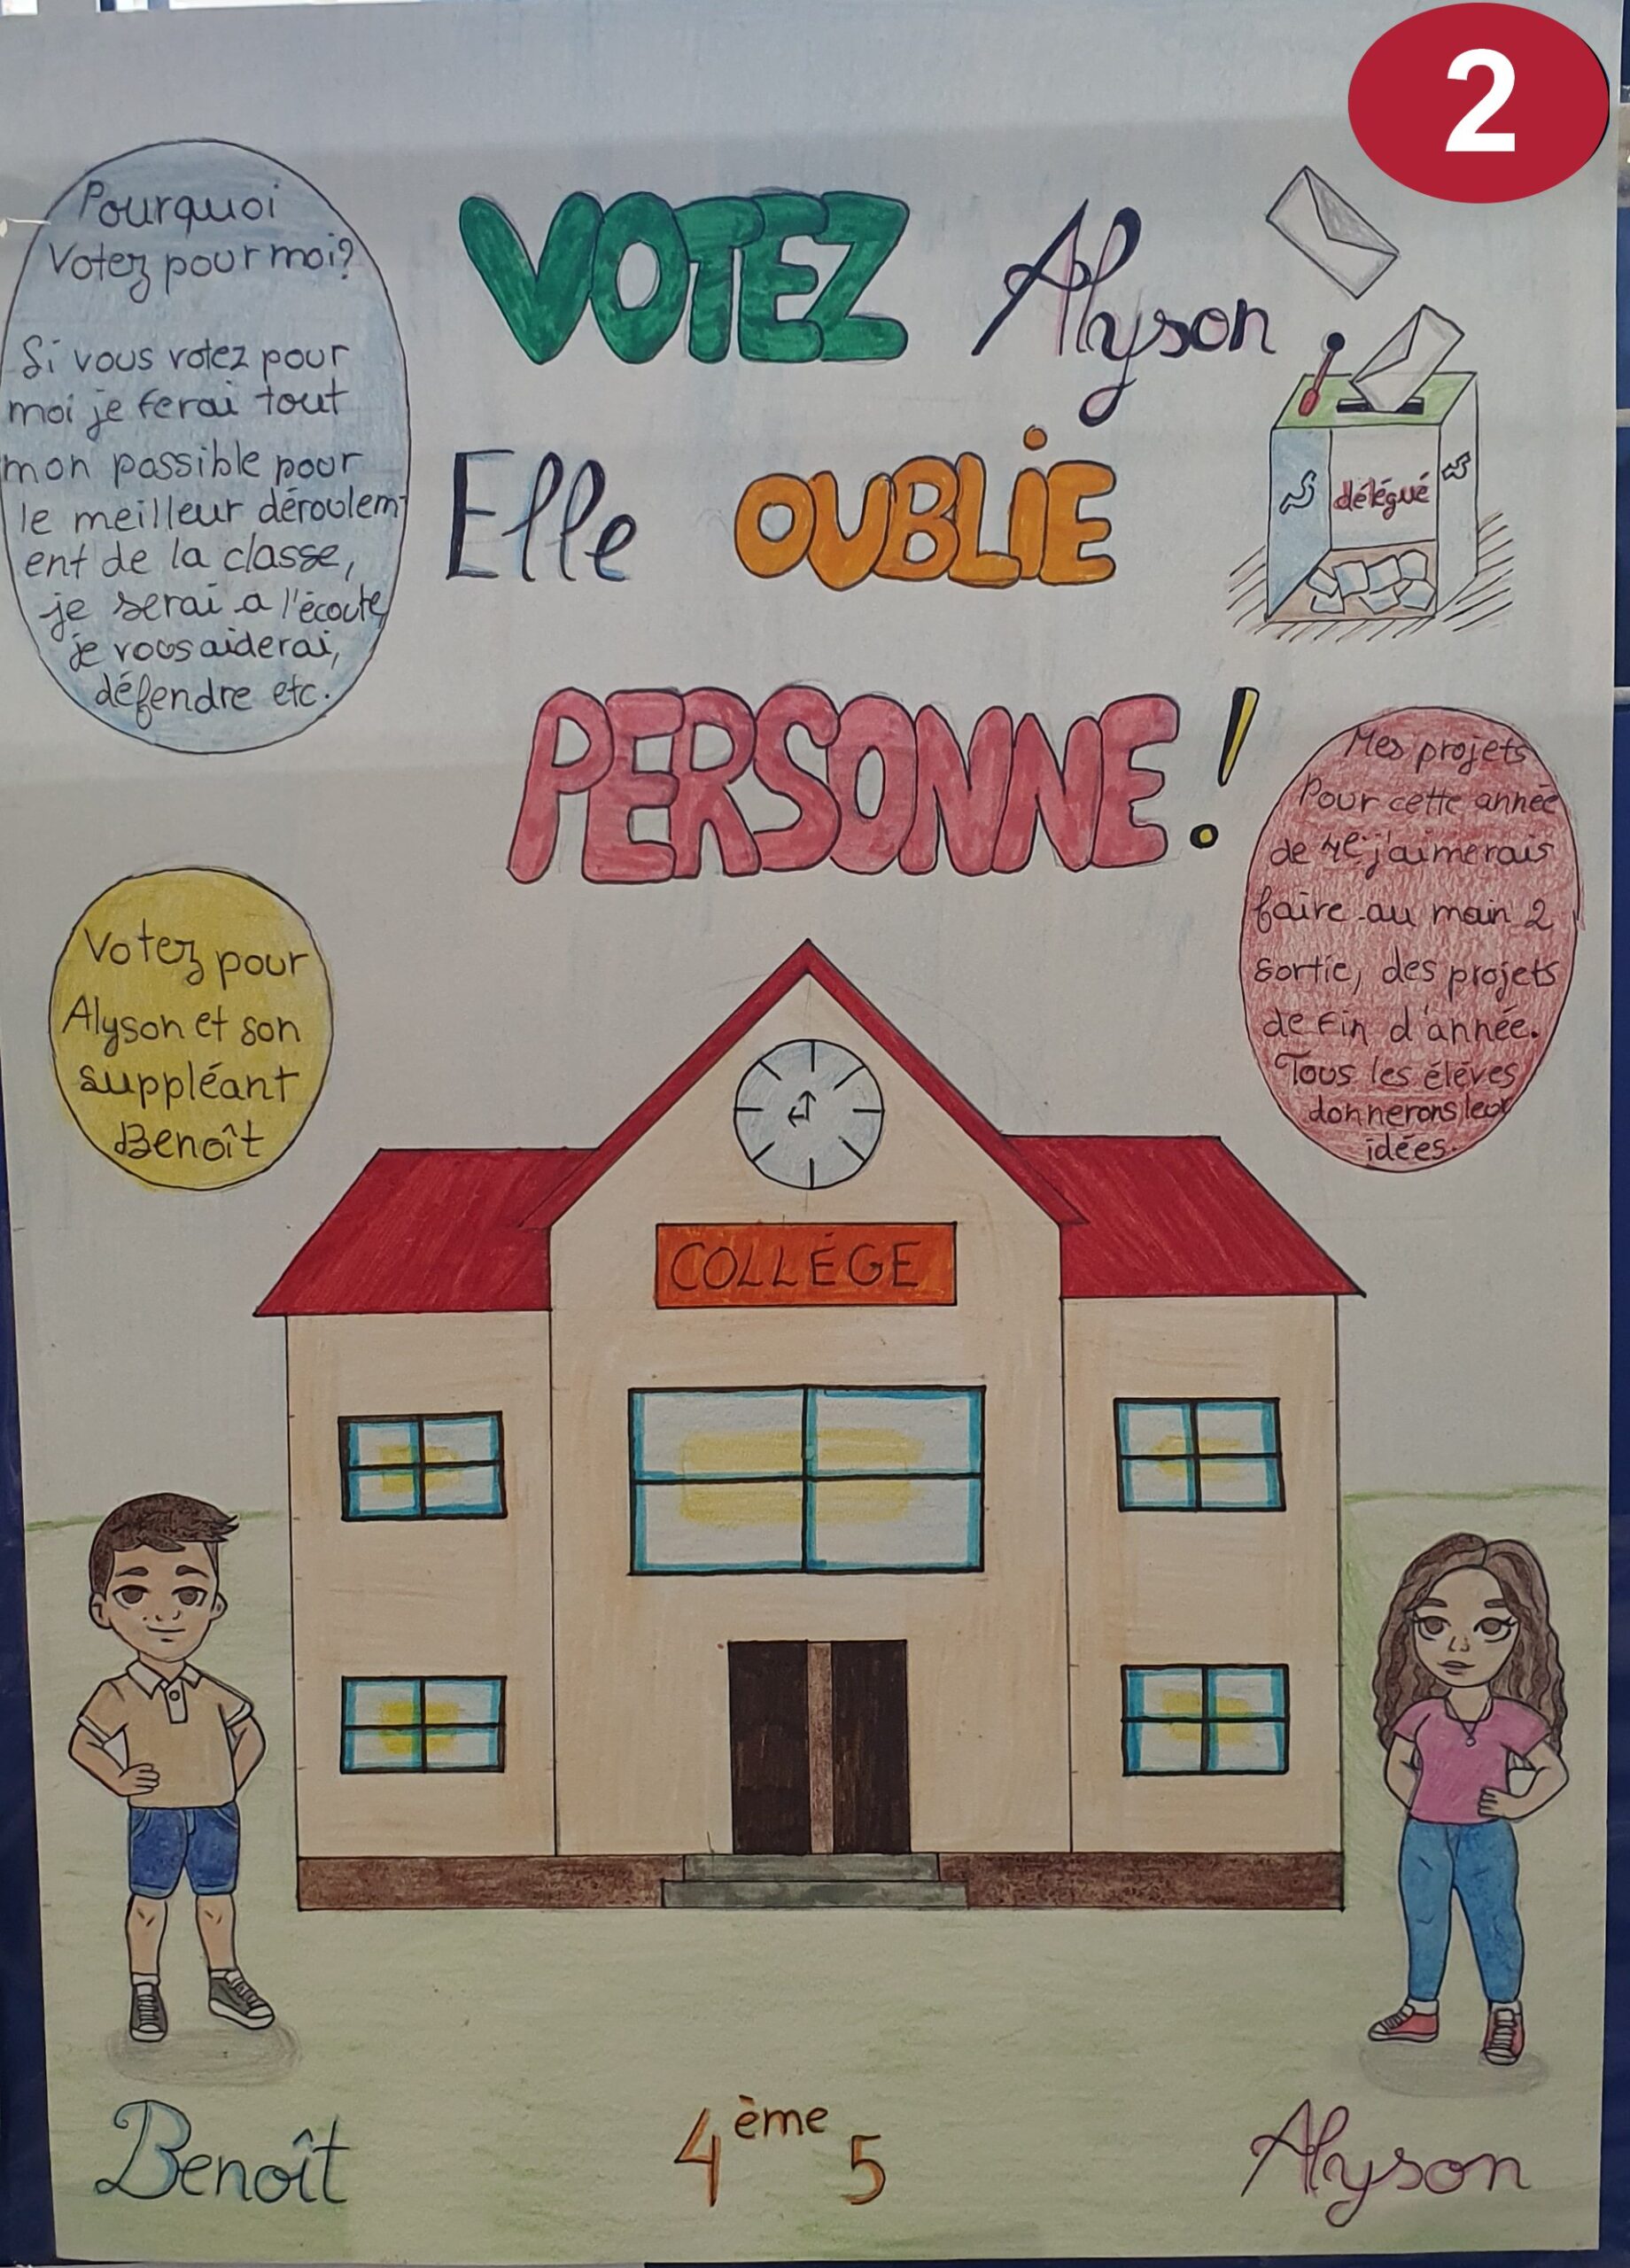 2
Pourquoi
Votez pour moi?
Si vous votez pour
moi je ferai tout
mon possible pour
le meilleur déroulem-
ent de la classe,
je serai a l'écoute
je vous aiderai,
défendre etc.
VOTEZ Alyson
Elle OUBLIE
PERSONNE !
délégué
Mes projets
Pour cette année
de 4e j'aimerais
faire au main 2
sortie, des projets
de fin d'année.
Tous les éléves
donnerons leur
idées.
Votez pour
Alyson et son
suppléant
Benoît
COLLÉGE
Benoît
4ème 5
Alyson